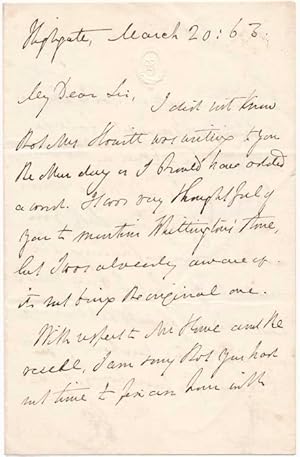 Highgate, March 20: 63.
My Dear Sir, I did not know
that Mrs. Howitt was writing to you
the other day or I should have added
a word. It was very thoughtful of
you to mention Whittington's Stone,
but I was already aware of
its not being the original one.
With respect to Mr Howe and the
I am sorry that you had
not time to